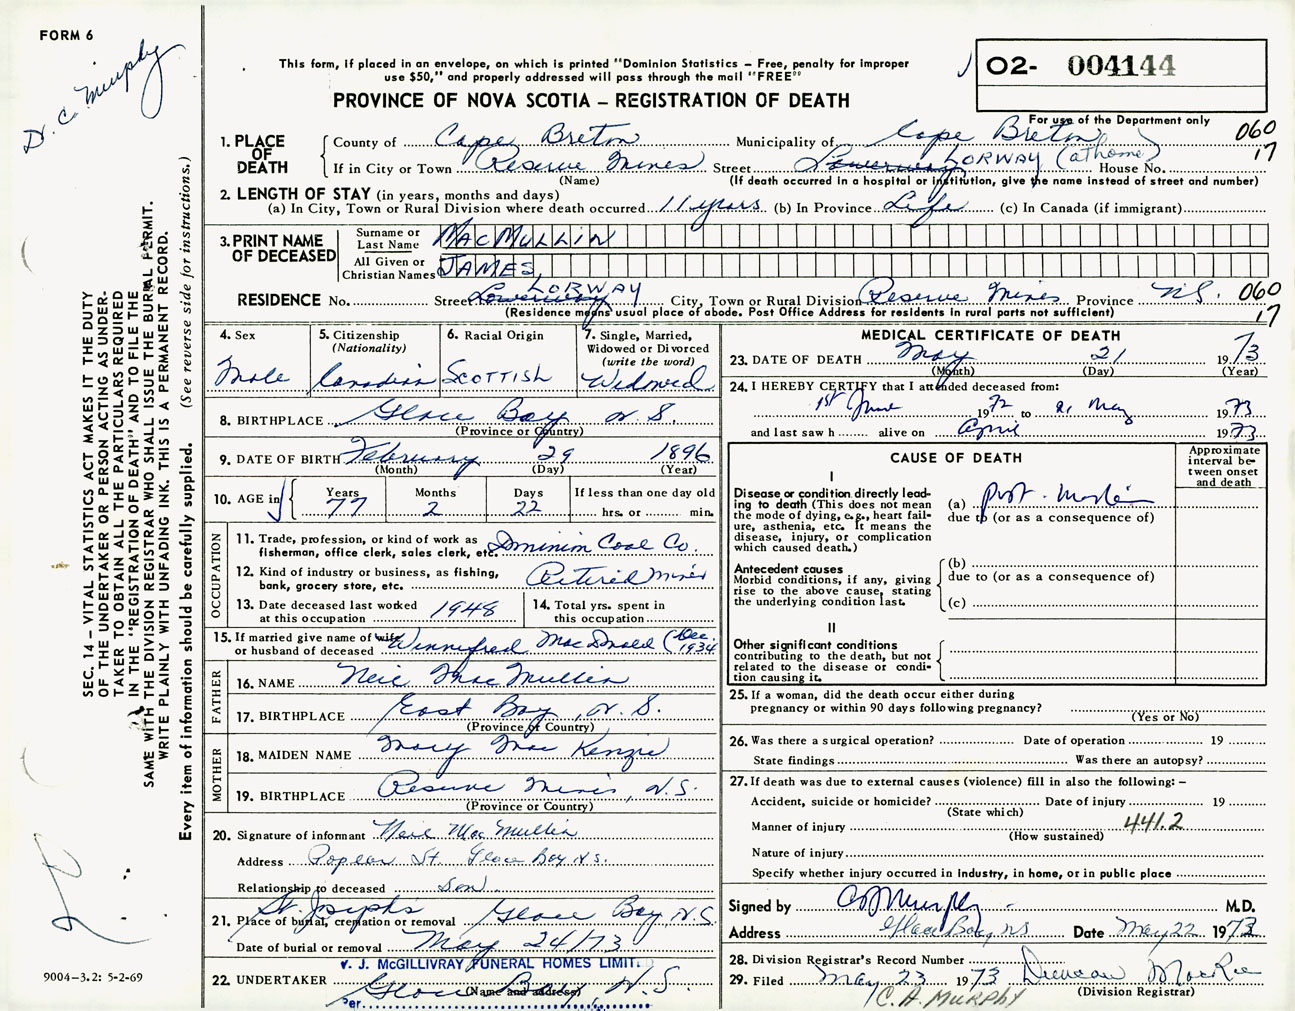 FORM 6
Dr. C. Murphy
This form, if placed in an envelope, on which is printed "Dominion Statistics – Free, penalty for improper
use $50," and properly addressed will pass through the mail "FREE"
PROVINCE OF NOVA SCOTIA – REGISTRATION OF DEATH
O2- 004144
For use of the Department only
060
17
1. PLACE OF DEATH
County of Cape Breton Municipality of Cape Breton
If in City or Town Reserve Mines Street LORWAY (at home) House No.
(Name) (If death occurred in a hospital or institution, give the name instead of street and number)
2. LENGTH OF STAY (in years, months and days)
(a) In City, Town or Rural Division where death occurred 11 years (b) In Province Life (c) In Canada (if immigrant)
3. PRINT NAME OF DECEASED
Surname or Last Name MACMULLIN
All Given or Christian Names JAMES
RESIDENCE No. Street LORWAY City, Town or Rural Division Reserve Mines Province N.S. 060
(Residence means usual place of abode. Post Office Address for residents in rural parts not sufficient) 17
4. Sex
Male
5. Citizenship
(Nationality)
Canadian
6. Racial Origin
SCOTTISH
7. Single, Married,
Widowed or Divorced
(write the word)
Widowed
8. BIRTHPLACE Glace Bay N.S.
(Province or Country)
9. DATE OF BIRTH February 29 1896
(Month) (Day) (Year)
10. AGE in
Years 77
Months 2
Days 22
If less than one day old
hrs. or min.
OCCUPATION
11. Trade, profession, or kind of work as
fisherman, office clerk, sales clerk, etc. Dominion Coal Co.
12. Kind of industry or business, as fishing,
bank, grocery store, etc. Retired Miner
13. Date deceased last worked
at this occupation 1948
14. Total yrs. spent in
this occupation
15. If married give name of wife
or husband of deceased Winnifred MacDonald (Dec. 1934
FATHER
16. NAME Neil MacMullin
17. BIRTHPLACE East Bay, N.S.
(Province or Country)
MOTHER
18. MAIDEN NAME Mary MacKenzie
19. BIRTHPLACE Reserve Mines, N.S.
(Province or Country)
20. Signature of informant Neil MacMullin
Address Poplar St. Glace Bay N.S.
Relationship to deceased son
St. Josephs
21. Place of burial, cremation or removal Glace Bay, N.S.
Date of burial or removal May 24/73
V. J. McGILLIVRAY FUNERAL HOMES LIMITED
22. UNDERTAKER Glace Bay N.S.
(Name and address)
Per
MEDICAL CERTIFICATE OF DEATH
23. DATE OF DEATH May 21 1973
(Month) (Day) (Year)
24. I HEREBY CERTIFY that I attended deceased from:
1st June 1972 to 21 May 1973
and last saw h alive on April 1973
CAUSE OF DEATH
Approximate
interval be-
tween onset
and death
I
Disease or condition directly lead-
ing to death (This does not mean
the mode of dying, e.g., heart fail-
ure, asthenia, etc. It means the
disease, injury, or complication
which caused death.)
(a)
due to (or as a consequence of)
Antecedent causes
Morbid conditions, if any, giving
rise to the above cause, stating
the underlying condition last.
(b)
due to (or as a consequence of)
(c)
II
Other significant conditions
contributing to the death, but not
related to the disease or condi-
tion causing it.
25. If a woman, did the death occur either during
pregnancy or within 90 days following pregnancy?
(Yes or No)
26. Was there a surgical operation? Date of operation 19
State findings Was there an autopsy?
27. If death was due to external causes (violence) fill in also the following: –
Accident, suicide or homicide? Date of injury 19
(State which)
Manner of injury 441.2
(How sustained)
Nature of injury
Specify whether injury occurred in industry, in home, or in public place
Signed by C Murphy M.D.
Address Glace Bay, N.S. Date May 22 1973
28. Division Registrar's Record Number
29. Filed May 23 1973 Duncan MacRae
(Division Registrar)
C. A. MURPHY
SEC. 14 – VITAL STATISTICS ACT MAKES IT THE DUTY
OF THE UNDERTAKER OR PERSON ACTING AS UNDER-
TAKER TO OBTAIN ALL THE PARTICULARS REQUIRED
IN THE "REGISTRATION OF DEATH" AND TO FILE THE
SAME WITH THE DIVISION REGISTRAR WHO SHALL ISSUE THE BURIAL PERMIT.
WRITE PLAINLY WITH UNFADING INK. THIS IS A PERMANENT RECORD.
Every item of information should be carefully supplied. (See reverse side for instructions.)
9004-3.2: 5-2-69